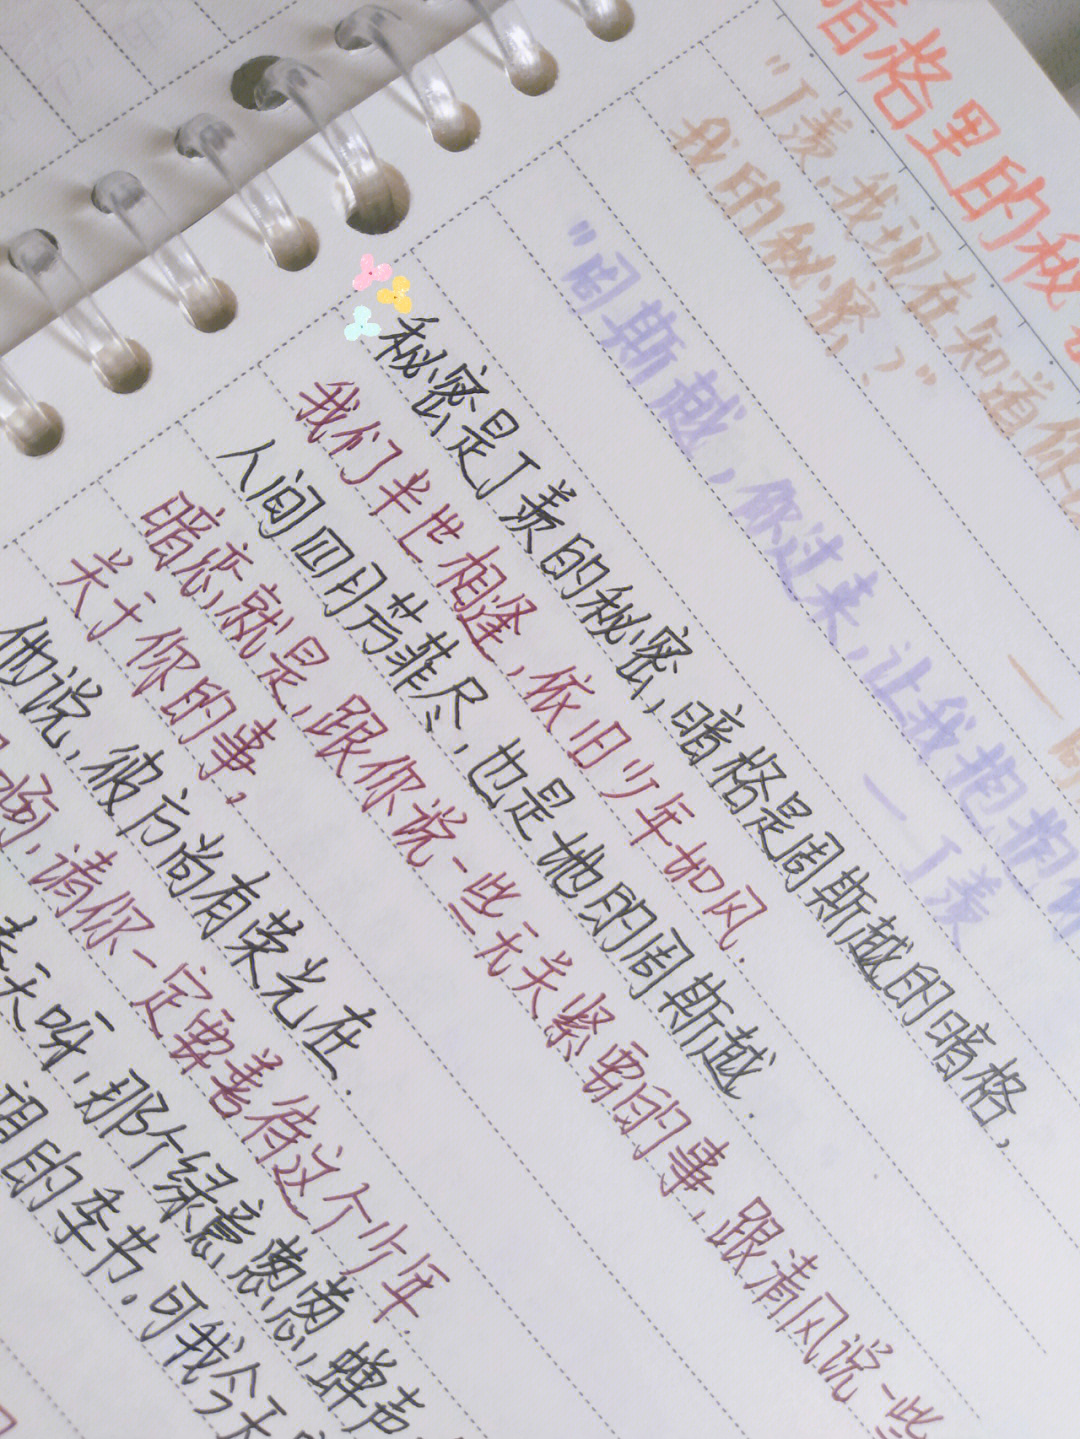 暗格里的秘
"丁羡,我现在知道你
我的秘密?"
"周斯越,你过来,让我抱抱你
—丁羡
秘密是丁羡的秘密,暗格是周斯越的暗格,
我们半世相逢,依旧少年如风.
人间四月芳菲尽,也是她的周斯越.
暗恋就是,跟你说一些无关紧要的事,跟清风说一些
关于你的事,
他说,彼方尚有荣光在.
请你一定要善待这个少年.
春天呀,那个绿意葱葱,蝉声
的季节.可我今天